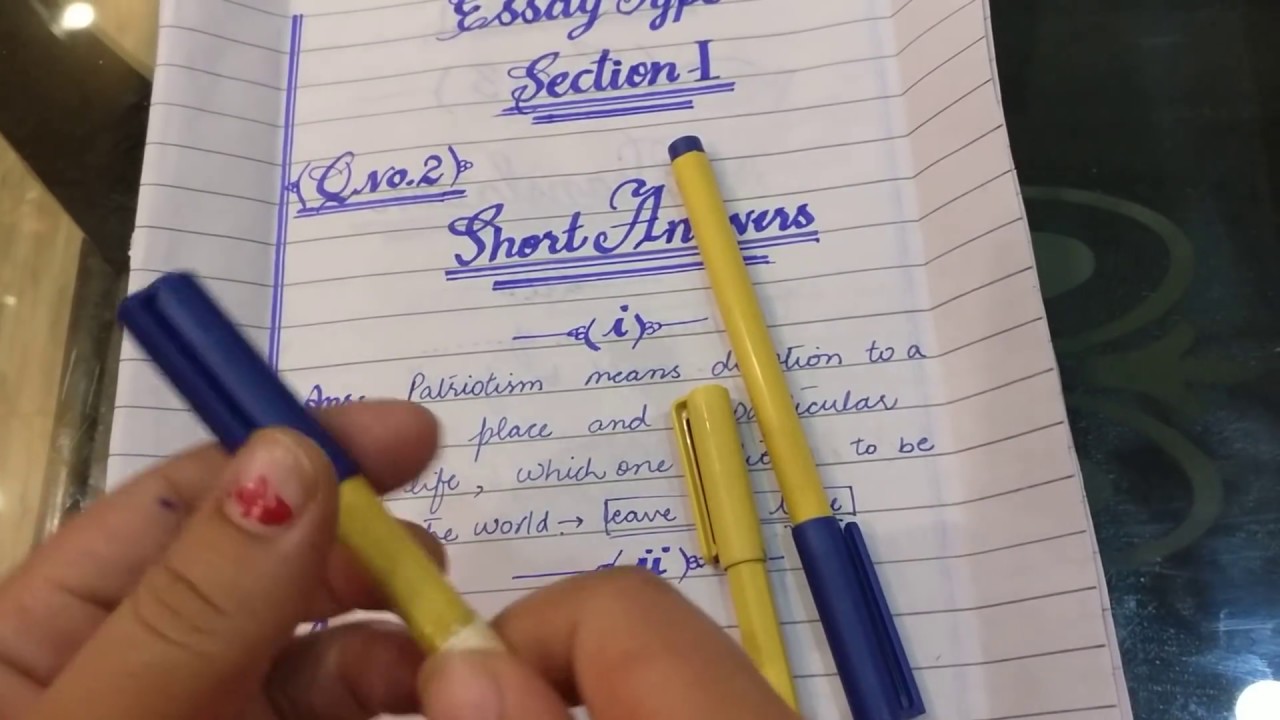 Essay Type
Section I
(Q No.2)
Short Answers
(i)
Ans: Patriotism means to a
place and particular
life, which one to be
the world → leave
(ii)